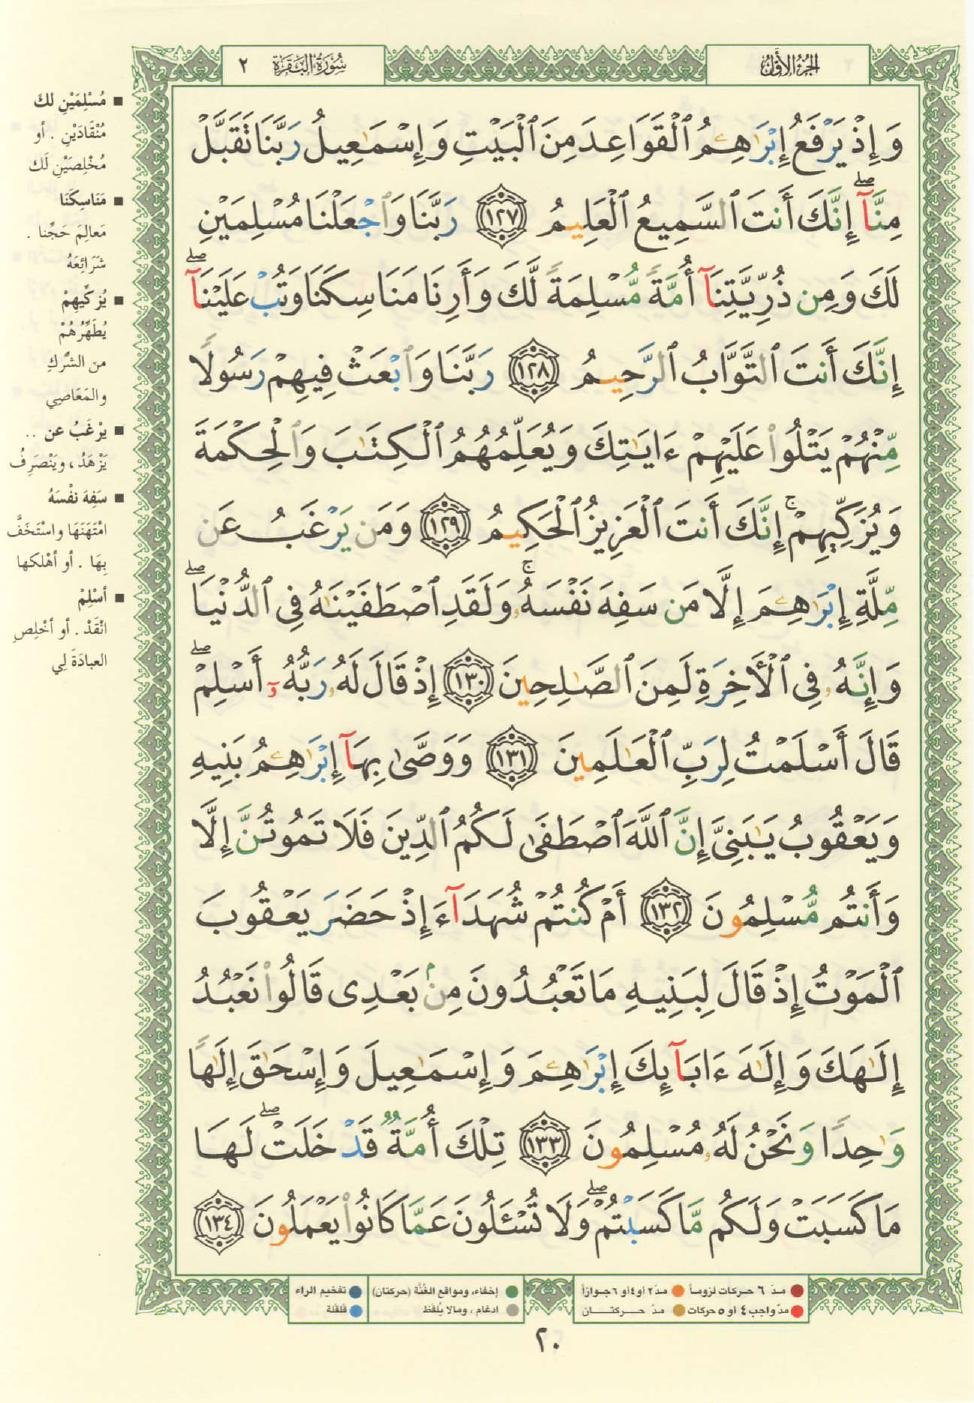 الجزء الأول
سورة البقرة ٢
وَإِذْ يَرْفَعُ إِبْرَٰهِـۧمُ ٱلْقَوَاعِدَ مِنَ ٱلْبَيْتِ وَإِسْمَٰعِيلُ رَبَّنَا تَقَبَّلْ
مِنَّآ ۖ إِنَّكَ أَنتَ ٱلسَّمِيعُ ٱلْعَلِيمُ ١٢٧ رَبَّنَا وَٱجْعَلْنَا مُسْلِمَيْنِ
لَكَ وَمِن ذُرِّيَّتِنَآ أُمَّةً مُّسْلِمَةً لَّكَ وَأَرِنَا مَنَاسِكَنَا وَتُبْ عَلَيْنَآ ۖ
إِنَّكَ أَنتَ ٱلتَّوَّابُ ٱلرَّحِيمُ ١٢٨ رَبَّنَا وَٱبْعَثْ فِيهِمْ رَسُولًا
مِّنْهُمْ يَتْلُوا۟ عَلَيْهِمْ ءَايَٰتِكَ وَيُعَلِّمُهُمُ ٱلْكِتَٰبَ وَٱلْحِكْمَةَ
وَيُزَكِّيهِمْ ۚ إِنَّكَ أَنتَ ٱلْعَزِيزُ ٱلْحَكِيمُ ١٢٩ وَمَن يَرْغَبُ عَن
مِّلَّةِ إِبْرَٰهِـۧمَ إِلَّا مَن سَفِهَ نَفْسَهُۥ ۚ وَلَقَدِ ٱصْطَفَيْنَٰهُ فِى ٱلدُّنْيَا ۖ
وَإِنَّهُۥ فِى ٱلْـَٔاخِرَةِ لَمِنَ ٱلصَّٰلِحِينَ ١٣٠ إِذْ قَالَ لَهُۥ رَبُّهُۥٓ أَسْلِمْ ۖ
قَالَ أَسْلَمْتُ لِرَبِّ ٱلْعَٰلَمِينَ ١٣١ وَوَصَّىٰ بِهَآ إِبْرَٰهِـۧمُ بَنِيهِ
وَيَعْقُوبُ يَٰبَنِىَّ إِنَّ ٱللَّهَ ٱصْطَفَىٰ لَكُمُ ٱلدِّينَ فَلَا تَمُوتُنَّ إِلَّا
وَأَنتُم مُّسْلِمُونَ ١٣٢ أَمْ كُنتُمْ شُهَدَآءَ إِذْ حَضَرَ يَعْقُوبَ
ٱلْمَوْتُ إِذْ قَالَ لِبَنِيهِ مَا تَعْبُدُونَ مِنۢ بَعْدِى قَالُوا۟ نَعْبُدُ
إِلَٰهَكَ وَإِلَٰهَ ءَابَآئِكَ إِبْرَٰهِـۧمَ وَإِسْمَٰعِيلَ وَإِسْحَٰقَ إِلَٰهًا
وَٰحِدًا وَنَحْنُ لَهُۥ مُسْلِمُونَ ١٣٣ تِلْكَ أُمَّةٌ قَدْ خَلَتْ ۖ لَهَا
مَا كَسَبَتْ وَلَكُم مَّا كَسَبْتُمْ ۖ وَلَا تُسْـَٔلُونَ عَمَّا كَانُوا۟ يَعْمَلُونَ ١٣٤
■ مُسْلِمَيْنِ لك
مُنْقَادَيْنِ . أو
مُخْلِصَيْنِ لَك
■ مَنَاسِكَنَا
مَعالِمَ حَجِّنا .
شَرَائِعَهُ
■ يُزَكِّيهِمْ
يُطَهِّرُهُمْ
من الشركِ
والمَعَاصِي
■ يرْغَبُ عن ..
يَزْهَدُ ، ويَنْصَرِفُ
■ سَفِهَ نفْسَهُ
امْتَهَنَهَا واسْتَخَفَّ
بِهَا . أو أهْلكها
■ أسْلِمْ
انْقَدْ . أو أخْلِصِ
العبادَةَ لِي
مدّ ٦ حركات لزوماً مدّ ٢ أو ٤ أو ٦ جوازاً
مدّ واجب ٤ أو ٥ حركات مدّ حركتان
إخفاء، ومواقع الغُنَّة (حركتان) تفخيم الراء
ادغام ، ومالا يُلفظ قلقلة
٢٠